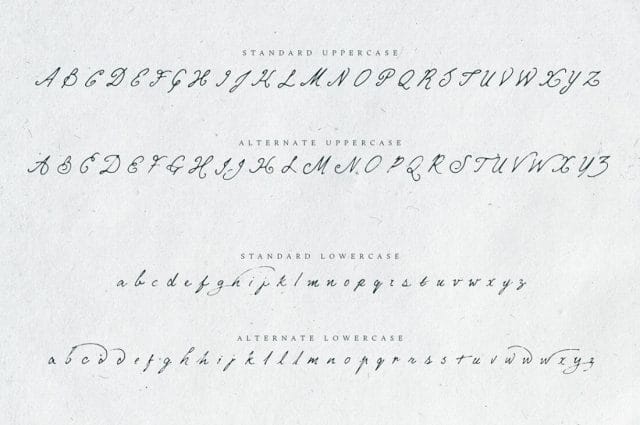 STANDARD UPPERCASE
A B C D E F G H I J K L M N O P Q R S T U V W X Y Z
ALTERNATE UPPERCASE
A B C D E F G H I J K L M N O P Q R S T U V W X Y Z
STANDARD LOWERCASE
a b c d e f g h i j k l m n o p q r s t u v w x y z
ALTERNATE LOWERCASE
a b c d d e f g h h i j k l l l m n o p q r r s s s t u v w w w x y z